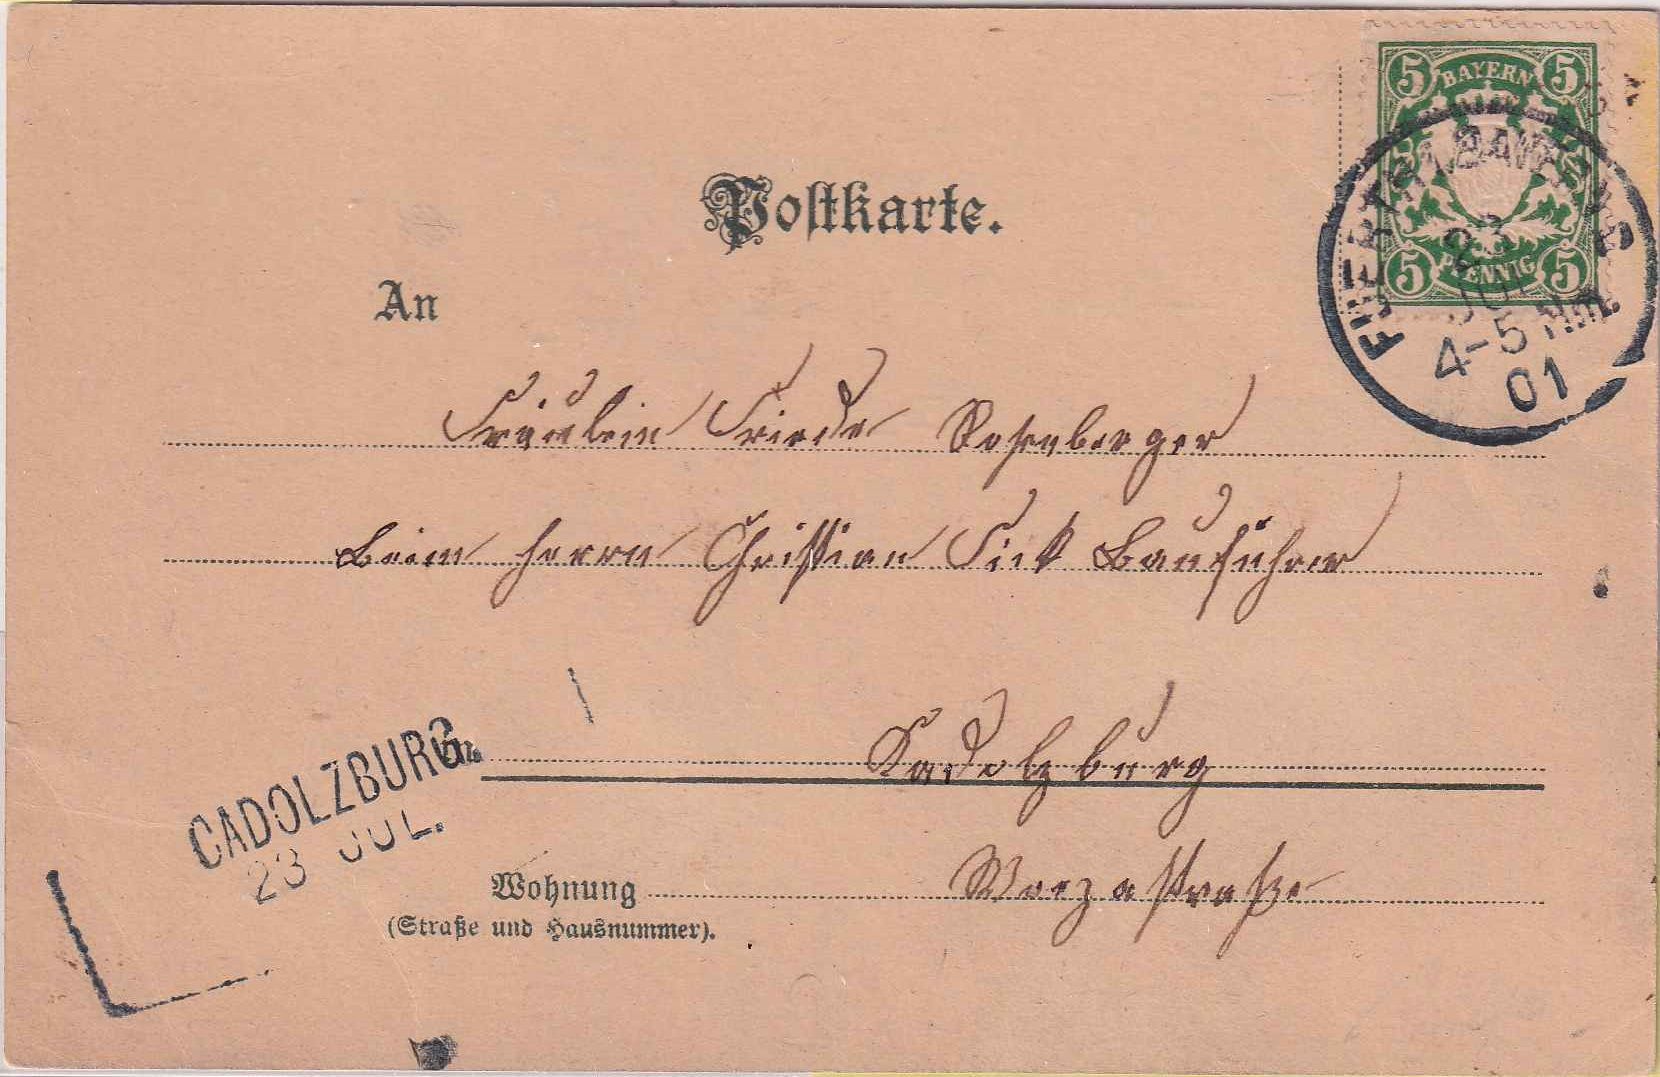 5 BAYERN 5
Postkarte.
23
5 PFENNIG 5
JUL
4-5 Nm.
01
An
Fräulein Friede Rosenberger
beim Herrn Christian Fick Bauführer
CADOLZBURG.
23 JUL.
in
Kadolzburg
Wohnung
(Straße und Hausnummer).